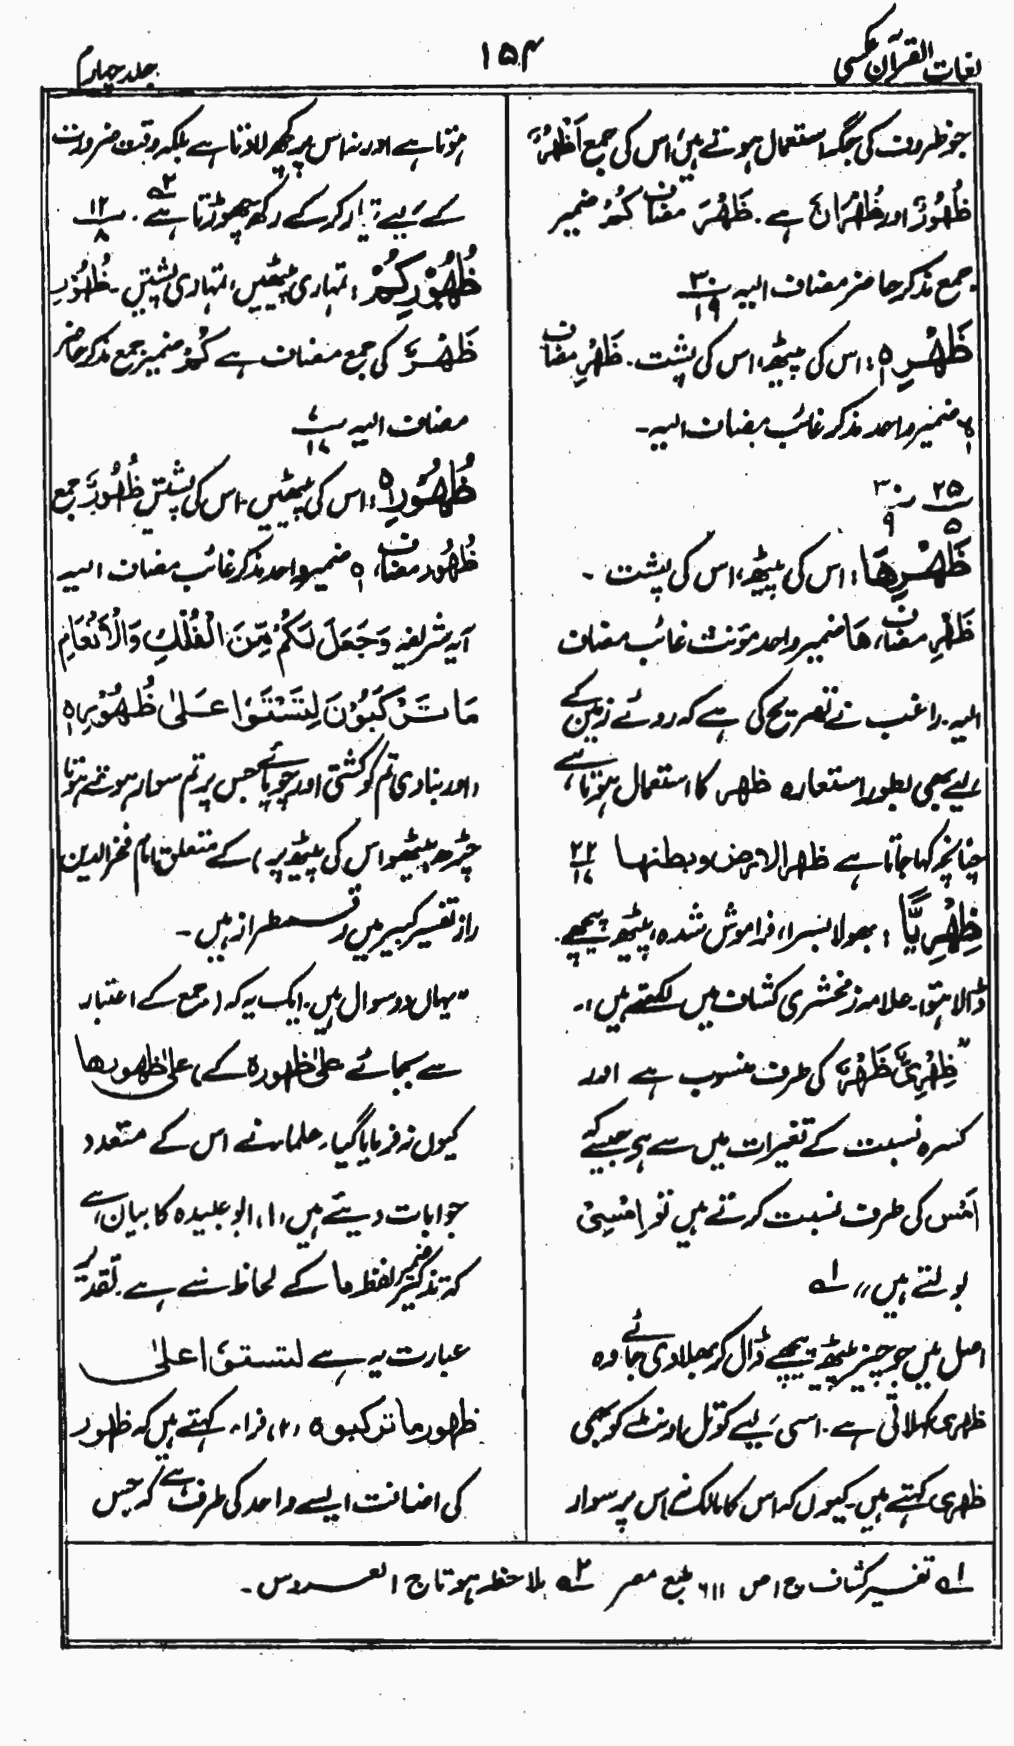 لغات القرآن عکسی
۱۵۴
جلد چہارم
جو ظروف کی جگہ استعمال ہوتے ہیں، اس کی جمع أَظْهُرٌ
ظُهُوْرٌ اور ظُهْرَانٌ ہے۔ ظَهْرَ مضاف كُمْ ضمیر
جمع مذکر حاضر مضاف الیہ ۳۰/۱۹
ظَهْرِهٖ: اس کی پیٹھ، اس کی پشت۔ ظَهْرِ مضاف
ہٖ ضمیر واحد مذکر غائب مضاف الیہ۔
۲۵/۵ ۳۰/۹
ظَهْرِهَا: اس کی پیٹھ، اس کی پشت۔
ظَهْرِ مضاف، هَا ضمیر واحد مؤنث غائب مضاف
الیہ۔ راغب نے تصریح کی ہے کہ روئے زمین کے
لیے بھی بطور استعارہ ظھر کا استعمال ہوتا ہے،
چنانچہ کہا جاتا ہے ظھر الارض و بطنھا ۲۲/۱۷
ظِهْرِيًّا: بھولا بسرا، فراموش شدہ، پیٹھ پیچھے
ڈالا ہوا۔ علامہ زمخشری کشاف میں لکھتے ہیں:۔
”ظِهْرِيٌّ ظَهْرٌ کی طرف منسوب ہے اور
کسرہ نسبت کے تغیرات میں سے ہے جیسے کہ
اَمْس کی طرف نسبت کرتے ہیں تو اِمْسِيٌّ
بولتے ہیں“ ۱ہ
اصل میں جو چیز پیٹھ پیچھے ڈال کر بھلا دی جائے وہ
ظہری کہلاتی ہے۔ اسی لیے کوتل اونٹ کو بھی
ظہری کہتے ہیں۔ کیوں کہ اس کا مالک نہ اس پر سوار
ہوتا ہے اور نہ اس پر کچھ لادتا ہے بلکہ وقت ضرورت
کے لیے تیار کر کے رکھ چھوڑتا ہے ۲ہ۔ ۱۲/۸
ظُهُوْرِكُمْ: تمہاری پیٹھیں، تمہاری پشتیں۔ ظُهُوْرِ
ظَهْرٌ کی جمع مضاف ہے كُمْ ضمیر جمع مذکر حاضر
مضاف الیہ ۷/۱۷
ظُهُوْرِهٖ: اس کی پیٹھیں۔ اس کی پشتیں ظُهُوْرٌ جمع
ظُهُور مضاف، ہٖ ضمیر واحد مذکر غائب مضاف الیہ
آیہ شریفہ وَجَعَلَ لَكُمْ مِّنَ الْفُلْكِ وَالْاَنْعَامِ
مَا تَرْكَبُوْنَ لِتَسْتَوٗا عَلٰى ظُهُوْرِهٖ
(اور بنا دی تم کو کشتی اور چوپائے جس پر تم سوار ہوتے ہو تا
چڑھ بیٹھو اس کی پیٹھ پر) کے متعلق امام فخر الدین
رازی تفسیر کبیر میں رقمطراز ہیں۔
”یہاں دو سوال ہیں۔ ایک یہ کہ (جمع کے اعتبار
سے بجائے علیٰ ظھورہ کے) علیٰ ظھورھا
کیوں نہ فرمایا گیا، علماء نے اس کے متعدد
جوابات دیئے ہیں (۱) ابو عبیدہ کا بیان ہے
کہ تذکیر ضمیر لفظ ما کے لحاظ سے ہے۔ تقدیر
عبارت یہ ہے لتستوٗا علیٰ
ظھور ما ترکبوہ (۲) فراء کہتے ہیں کہ ظھور
کی اضافت ایسے واحد کی طرف ہے کہ جس
۱ہ تفسیر کشاف ج ۱ ص ۶۱۱ طبع مصر ۲ہ ملاحظہ ہو تاج العروس۔